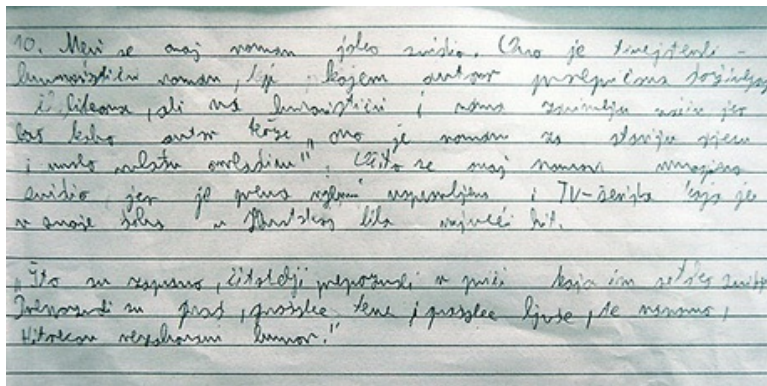 10. Meni se ovaj roman jako svidio. Ovo je tinejđerski -
humoristični roman, u kojem autor prepričava doživljaje
iz, ali na humoristični i nama zanimljiv način jer
baš kako autor kaže „ovo je roman za stariju djecu
i malo mlađu omladinu". Očito se ovaj roman mnogima
svidio, jer je prema njemu napravljena i TV-serija koja je
u svoje doba u Hrvatskoj bila najveći hit.
„Što su zapravo, čitatelji prepoznali u priči koja im se toliko
Prepoznali su grad, gradske teme i gradske ljude, te naravno,
Hitrecov neodoljiv humor."